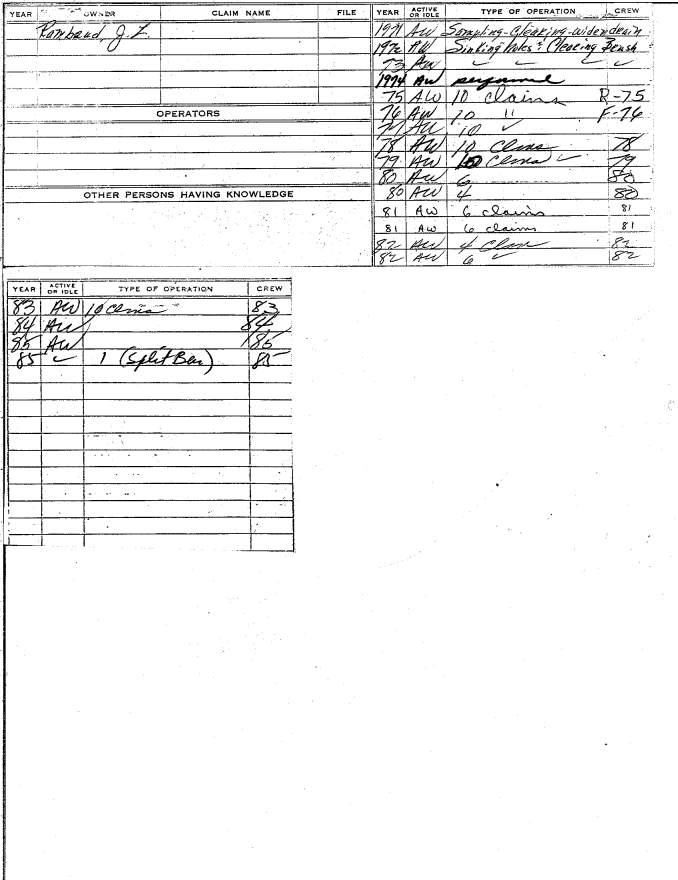 YEAR OWNER CLAIM NAME FILE
Rambaud, J. L.
OPERATORS
OTHER PERSONS HAVING KNOWLEDGE
YEAR ACTIVE OR IDLE TYPE OF OPERATION CREW
1971 AW Sampling-Clearing-widen drain
1972 AW Sinking holes & Clearing Brush
73 AW ✓ ✓ ✓ ✓
1974 AW
75 AW 10 claims R-75
76 AW 10 " F-76
77 AW 10 ✓
78 AW 10 Clms 78
79 AW 10 Clms ✓ 79
80 AW 6 80
80 AW 4 80
81 AW 6 claims 81
81 AW 6 claims 81
82 AW 4 82
82 AW 6 ✓ 82
YEAR ACTIVE OR IDLE TYPE OF OPERATION CREW
83 AW 10 Clms 83
84 AW 84
85 AW 85
85 ✓ 1 (Split Bar) 85